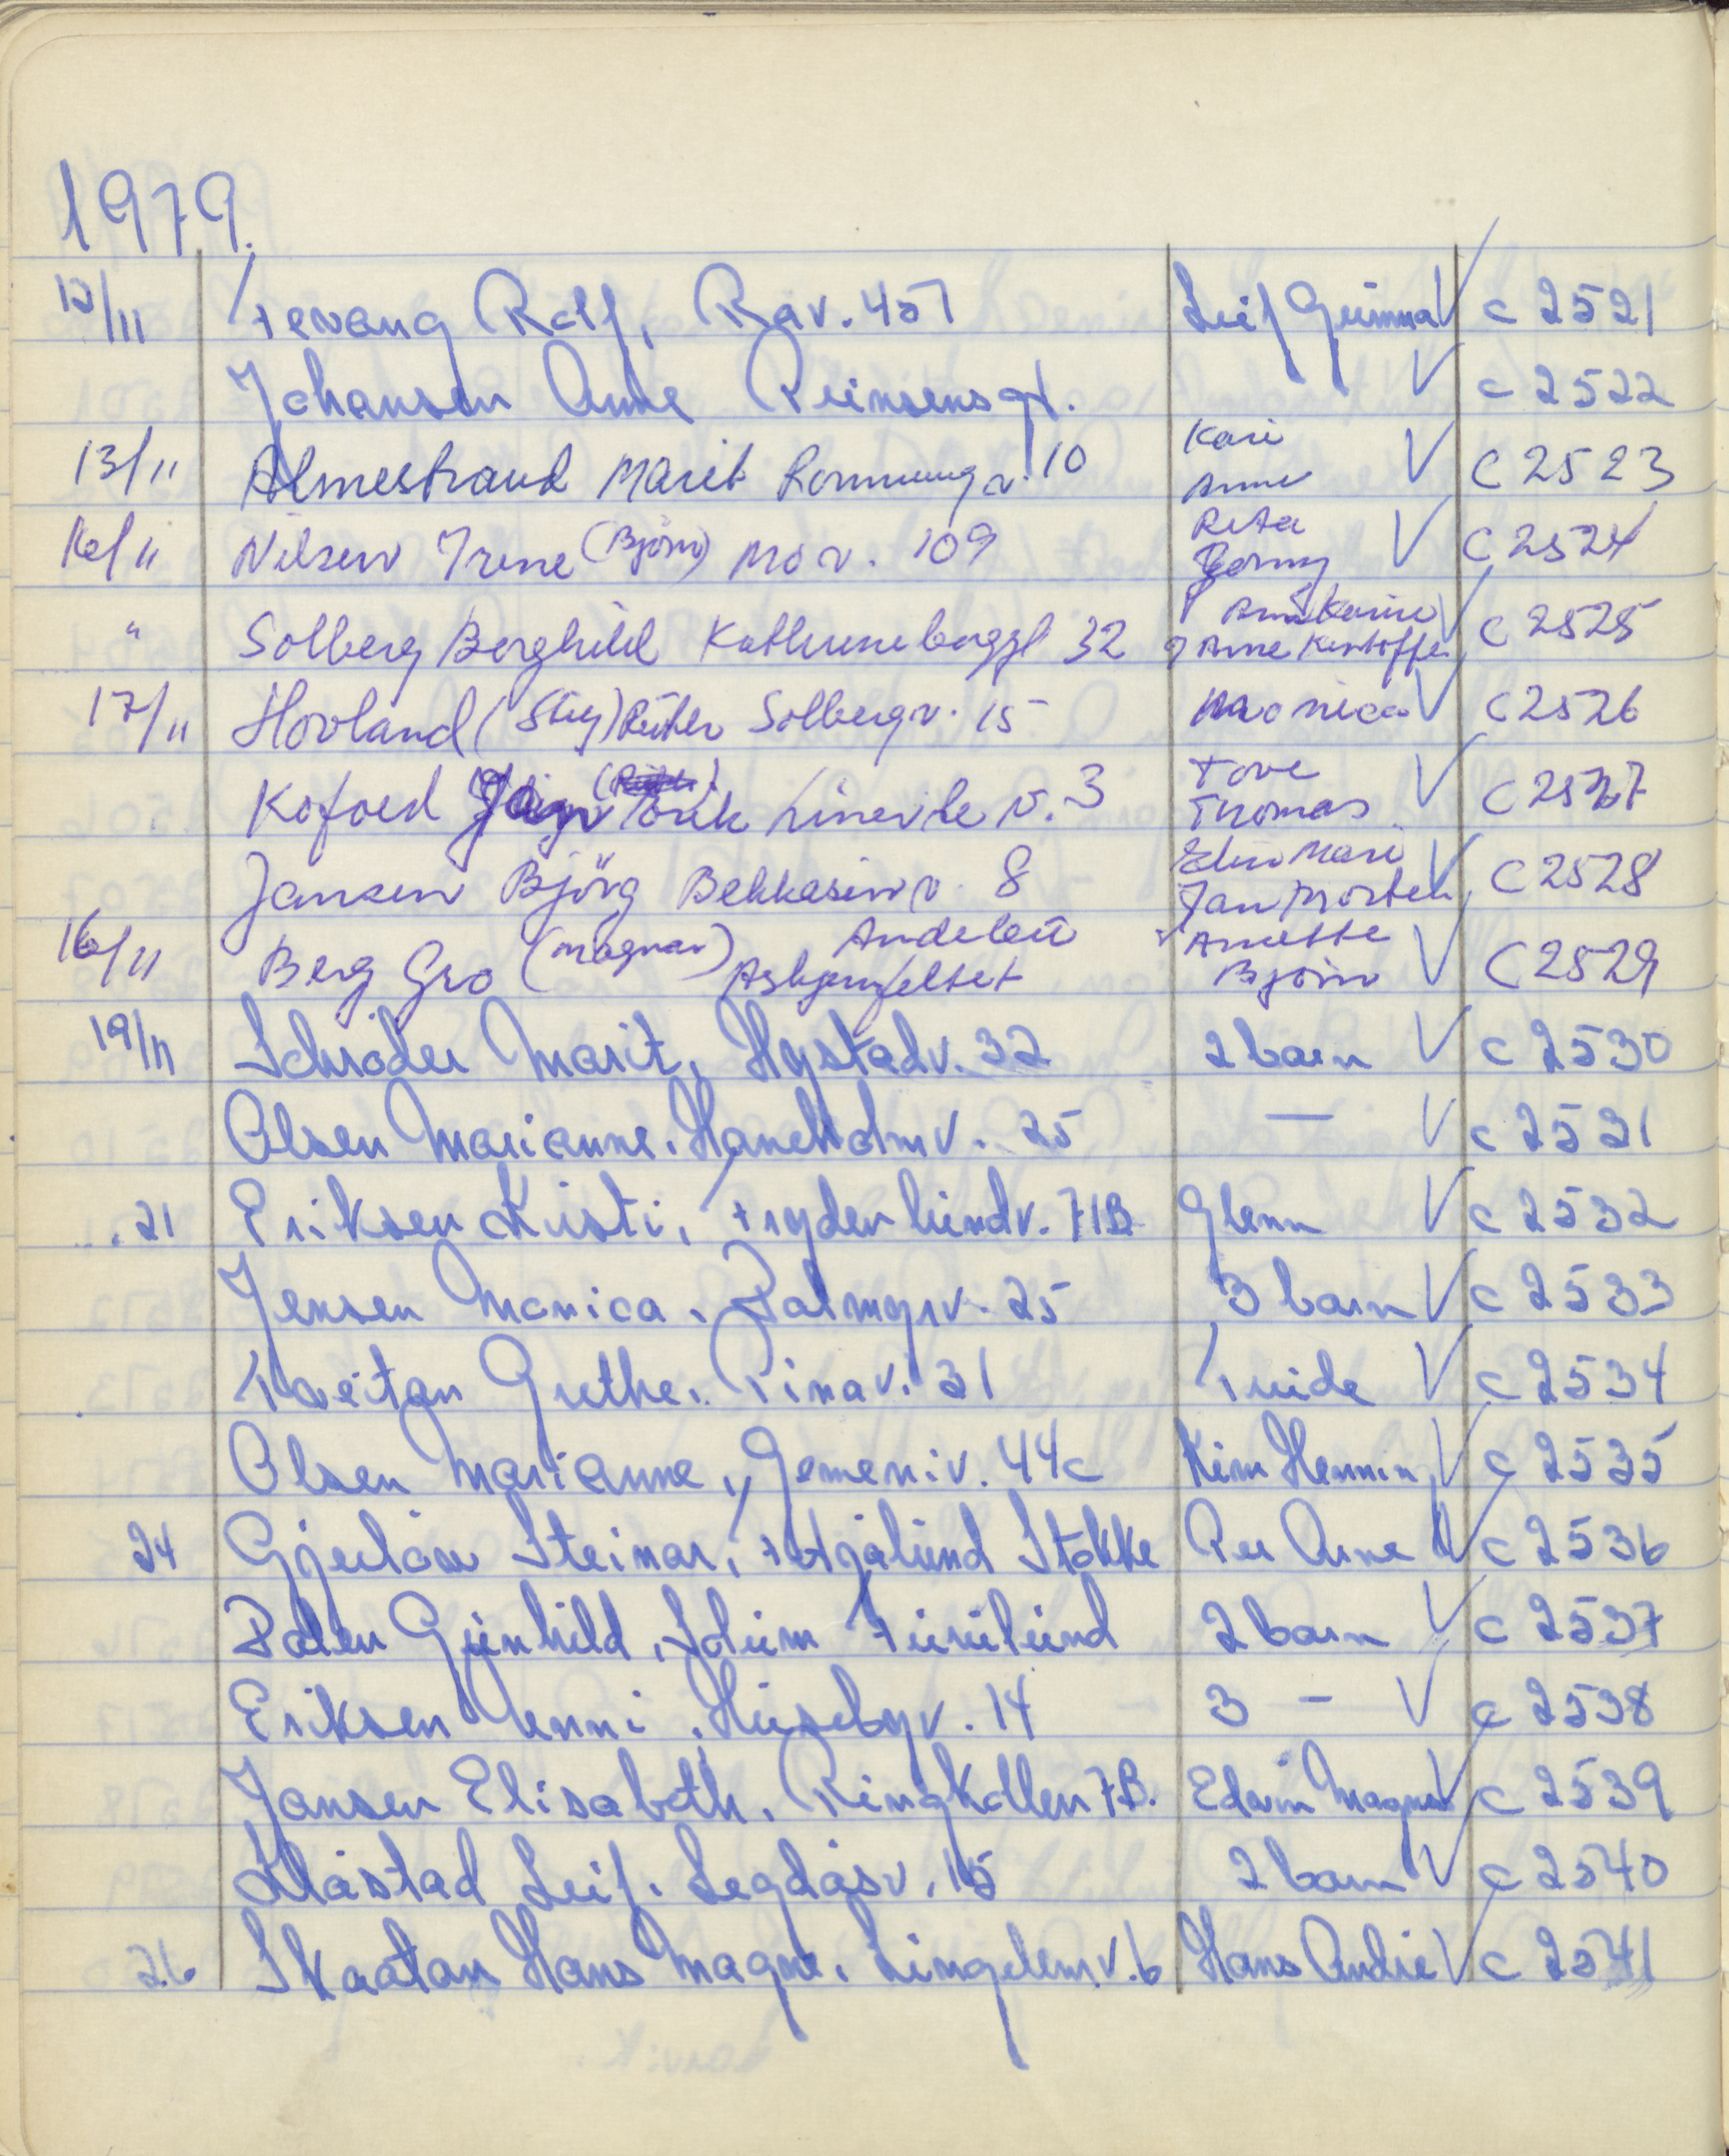 1979.
12/11 Tevang Rolf, Rav. 457 Leif Gunnar V c 2521
Johansen Anne Reinsensgt. V c 2522
13/11 Almestrand Marit Ronnungv. 10 Kari Anne V C 2523
16/11 Nilsen Irene (Bjørn) Mov. 109 Rita Jonny V C 2524
" Solberg Borghild Kathrineborggt 32 Ann Karin Arne Kristoffer V C 2525
17/11 Hovland (Stig) Ruther Solbergv. 15 Monica V C 2526
Kofoed Erik Linerle v. 3 Tove Thomas V C 2527
Jansen Bjørg Bekkasinv. 8 Elin Mari Jan Morten V C 2528
16/11 Berg Gro (Magnar) Andebu Askjemfeltet Anette Bjørn V C 2529
19/11 Schrøder Marit, Hystadv. 32 2 barn V c 2530
Olsen Marianne. Haneholmv. 25 — V c 2531
21 Eriksen Kirsti, Frydenlundv. 71B Glenn V c 2532
Jensen Monica. Palmgrv. 25 3 barn V c 2533
Tveitan Grethe. Rinav. 31 Turide V c 2534
Olsen Marianne, Gemeniv. 44c Kim Hennin V c 2535
24 Gjerløw Steinar, Fossnes Stokke Per Arne V c 2536
Dalen Gunhild, Solum Furulund 2 barn V c 2537
Eriksen Unni. Husebyv. 14 3 — V c 2538
Jansen Elisabeth. Ringkollen 7B. Edvin Magnus V c 2539
Klåstad Leif. Legdåsv. 15 2 barn V c 2540
26 Skaatan Hans Magne. Lingelemv. 6 Hans André V c 2541